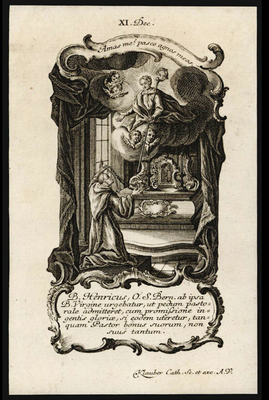 XI. Dec.
Amas me? pasce agnos meos
B. Henricus, O. S. Bern. ab ipsa
B. Virgine urgebatur, ut pedum pasto-
rale admitteret, cum promissione in-
gentis gloriæ, si eodem uteretur, tan-
quam Pastor bonus suorum, non
suus tantum.
Klauber Cath. Sc. et exc. A. V.